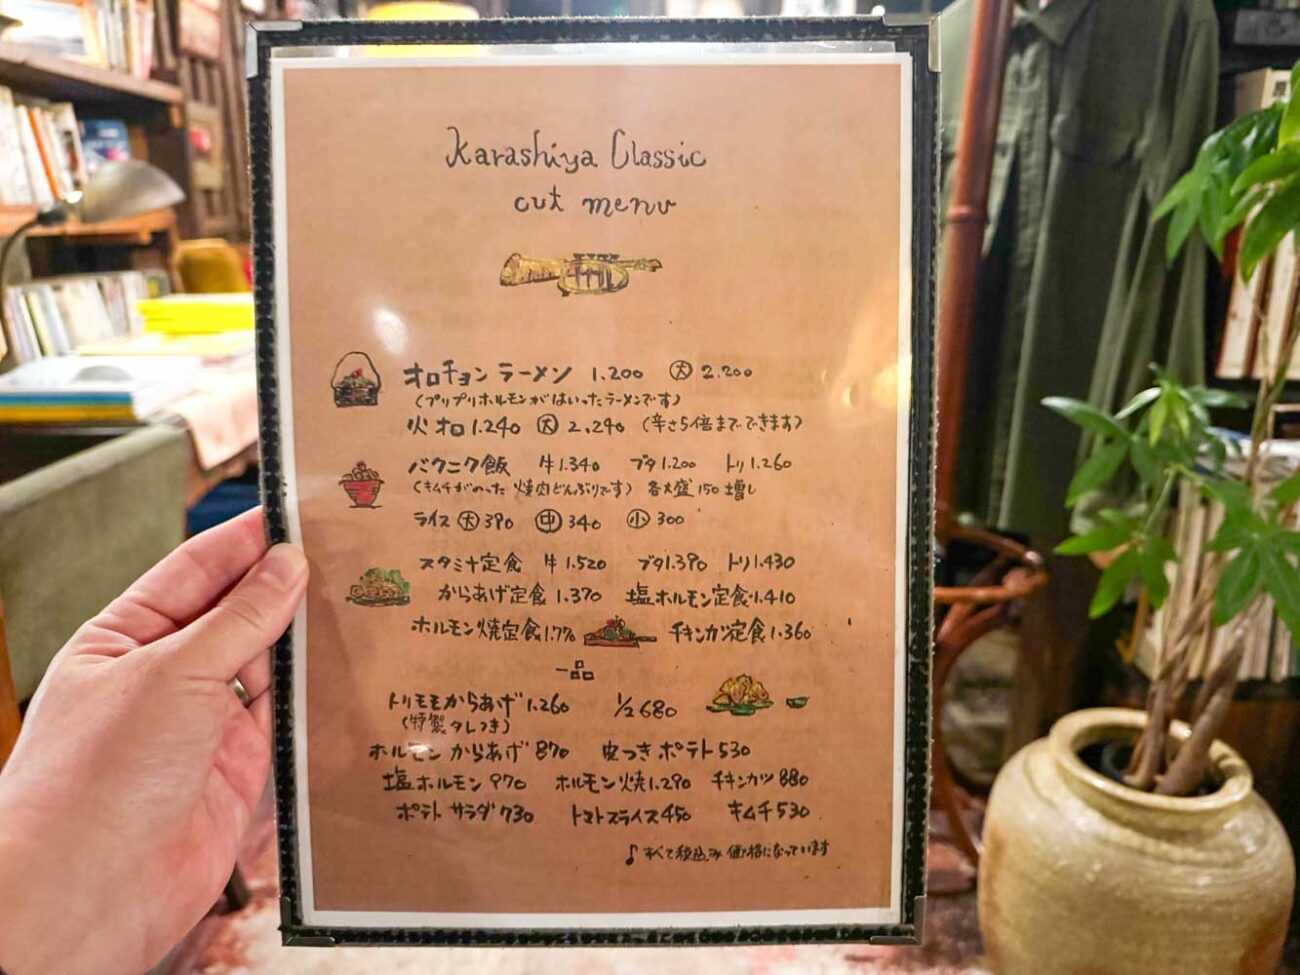 Karashiya Classic
cut menu
オロチョン ラーメン 1.200 大 2.200
(プリプリホルモンがはいったラーメンです)
火オロ 1.240 大 2,240 (辛さ5倍までできます)
バクニク飯 牛1.340 ブタ1.200 トリ1.260
(キムチがのった 焼肉どんぶりです) 各大盛150増し
ライス 大 390 中 340 小 300
スタミナ定食 牛1.520 ブタ1.390 トリ1.430
からあげ定食 1.370 塩ホルモン定食 1.410
ホルモン焼定食 チキンカツ定食 1.360
一品
トリモモからあげ 1.260 1/2 680
(特製タレつき)
ホルモンからあげ 870 皮つきポテト 530
塩ホルモン 970 ホルモン焼 1.290 チキンカツ 880
ポテトサラダ 730 トマトスライス 450 キムチ 530
♪すべて税込み価格になっています